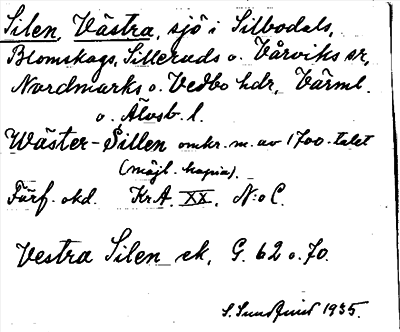 Silen, Västra, sjö i Silbodals,
Blomskogs, Silleruds o. Vårviks sr,
Nordmarks o. Vedbo hdr, Värml.
o. Älvsb. l.
Wäster-Sillen omkr. m. av 1700-talet
(möjl. kopia).
Förf. okd. Kr A. XX, N:o C.
Vestra Silen ek, G. 62 o. 70.
S. Sundqvist 1935.